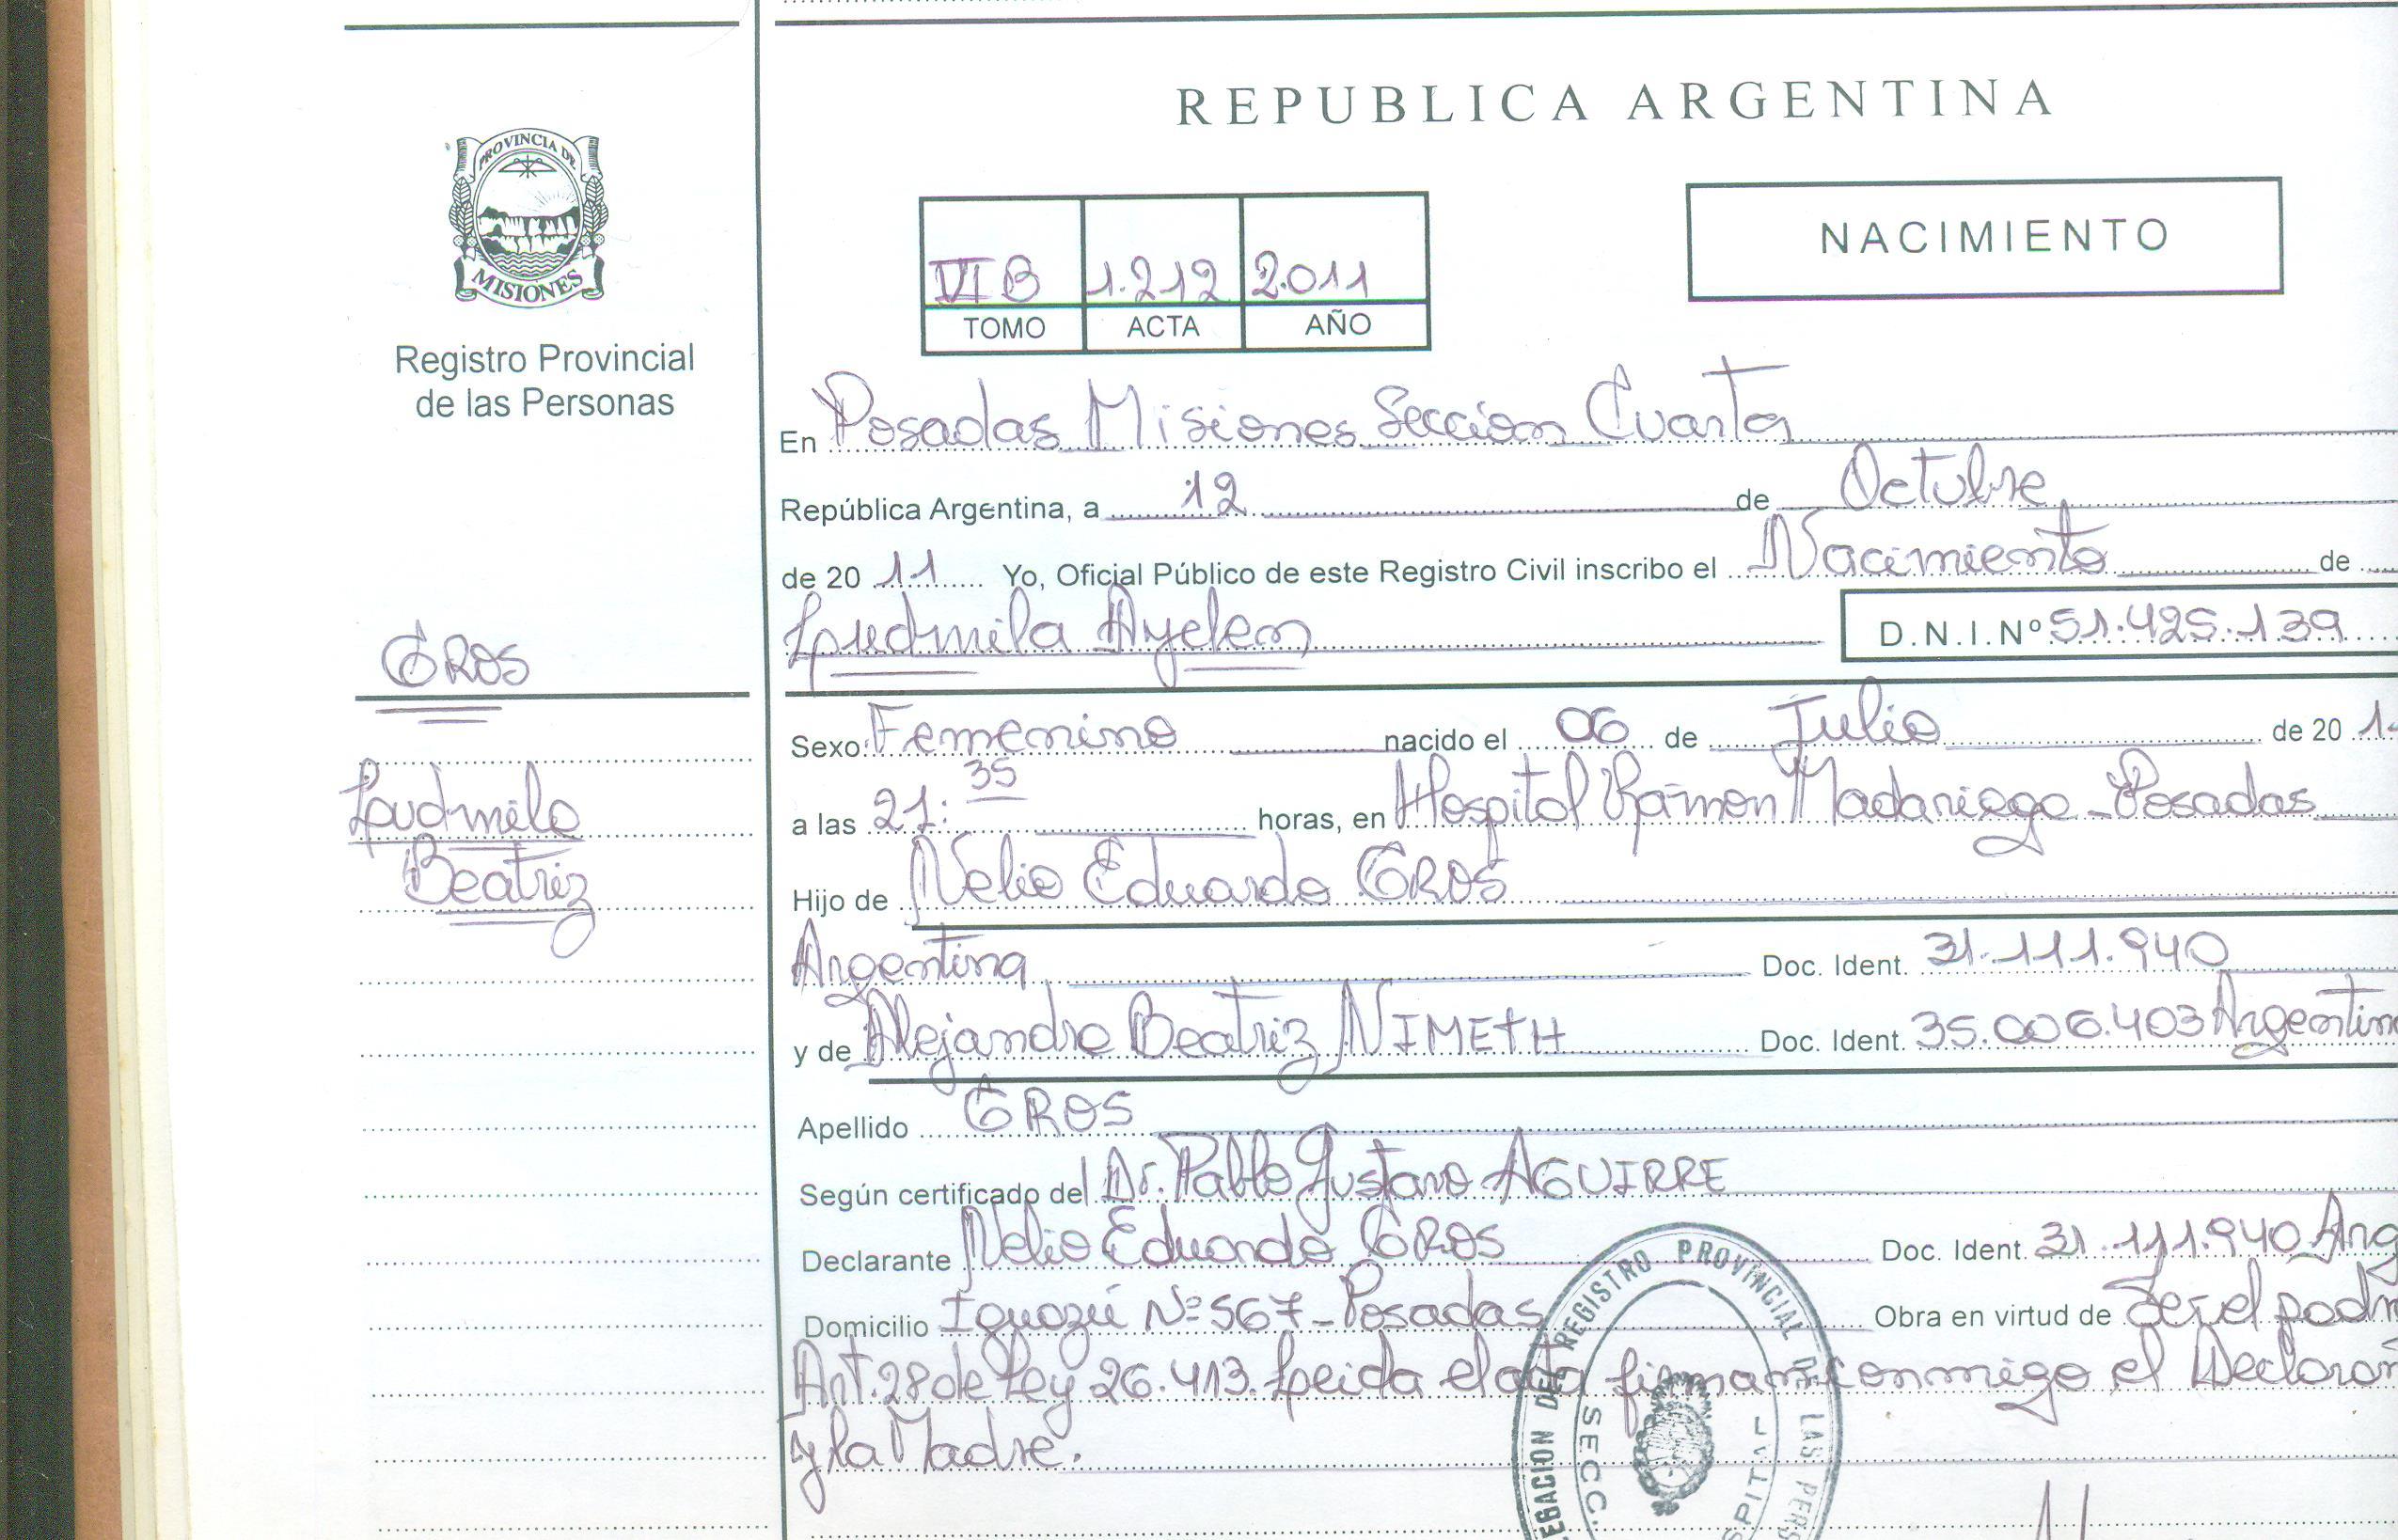 REPUBLICA ARGENTINA
PROVINCIA DE
MISIONES
Registro Provincial
de las Personas
NACIMIENTO
VI B 1.212 2.011
TOMO ACTA AÑO
En Posadas Misiones Sección Cuarta
República Argentina, a 12 de Octubre
de 20 11 Yo, Oficial Público de este Registro Civil inscribo el Nacimiento de
Ludmila Ayelen D.N.I.Nº 51.425.139
GROS
Ludmila
Beatriz
Sexo: Femenino nacido el 06 de Julio de 20 1
a las 21:35 horas, en Hospital Ramón Madariaga - Posadas
Hijo de Nelio Eduardo GROS
Argentina Doc. Ident. 31.111.940
y de Alejandra Beatriz NIMETH Doc. Ident. 35.006.403 Argentin
Apellido GROS
Según certificado del Dr. Pablo Gustavo AGUIRRE
Declarante Nelio Eduardo GROS Doc. Ident. 31.111.940 Arg
Domicilio Iguazú Nº 567 - Posadas Obra en virtud de Ser el padr
Art. 28 de Ley 26.413. Leida el acta firman conmigo el Declaran
y la Madre.
REGISTRO PROVINCIAL DE LAS PERS
EGACION DEL
SECC.
SPITAL